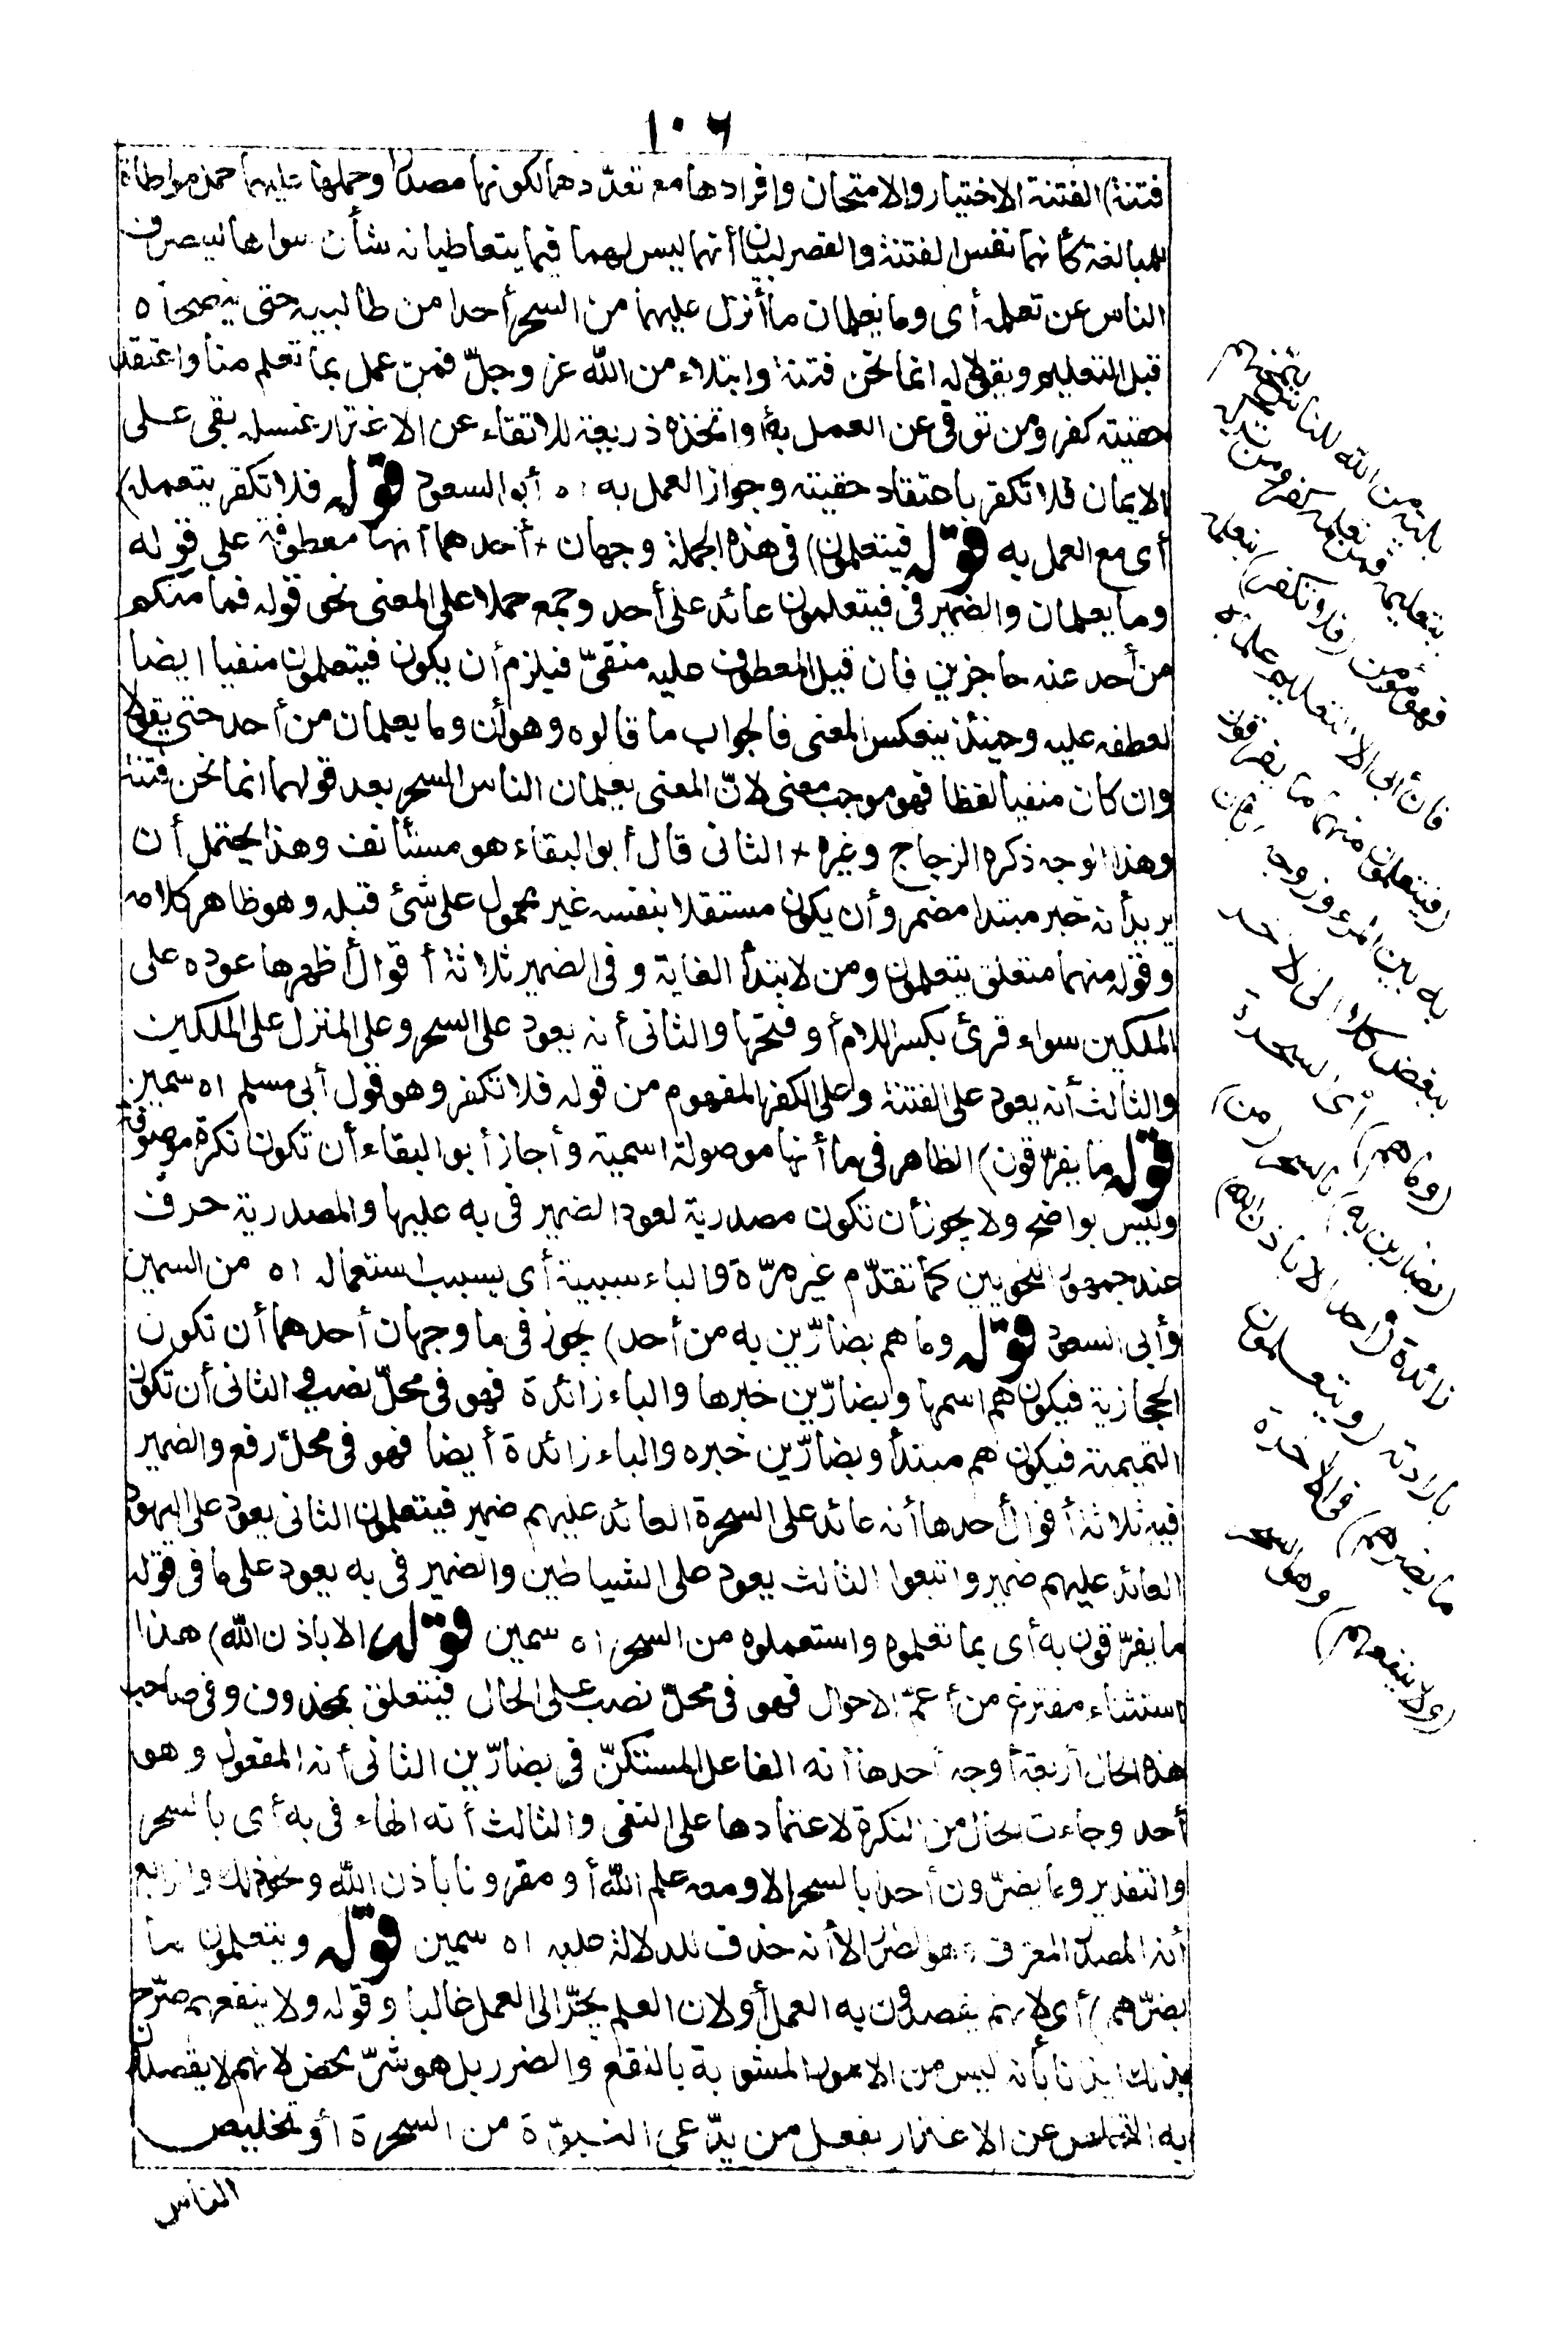 ١٠٦
فتنة) الفتنة الاختبار والامتحان وافرادها مع تعدّدهما لكونها مصدرا وحملها عليهما حمل مواطأة
للمبالغة كأنهما نفس الفتنة والقصر لبيان أنهما ليس لهما فيما يتعاطيانه شأن سواها لينصرف
الناس عن تعلمه أى وما يعلمان ما أنزل عليهما من السحر أحدا من طالبيه حتى ينصحاه
قبل التعليم ويقولا له انما نحن فتنة وابتلاء من الله عز وجلّ فمن عمل بما تعلم منا واعتقد
حقيته كفر ومن توقى عن العمل به أو اتخذه ذريعة للاتقاء عن الاغترار بمثله بقى على
الايمان فلا تكفر باعتقاد حقيته وجواز العمل به اه أبو السعود قوله فلا تكفر بتعمله)
أى مع العمل به قوله فيتعلمون) فى هذه الجملة وجهان * أحدهما أنها معطوفة على قوله
وما يعلمان والضمير فى فيتعلمون عائد على أحد وجمع حملا على المعنى نحو قوله فما منكم
من أحد عنه حاجزين فان قيل المعطوف عليه منفىّ فيلزم أن يكون فيتعلمون منفيا ايضا
لعطفه عليه وحينئذ ينعكس المعنى فالجواب ما قالوه وهو أن وما يعلمان من أحد حتى يقولا
وان كان منفيا لفظا فهو موجب معنى لانّ المعنى يعلمان الناس السحر بعد قولهما انما نحن فتنة
وهذا الوجه ذكره الزجاج وغيره * الثانى قال أبو البقاء هو مستأنف وهذا يحتمل أن
يريد أنه خبر مبتدا مضمر وأن يكون مستقلا بنفسه غير محمول على شئ قبله وهو ظاهر كلامه
وقوله منهما متعلق بيتعلمون ومن لابتدأ الغاية وفى الضمير ثلاثة أقوال أظهرها عوده على
الملكين سواء قرئ بكسر اللام أو فتحها والثانى أنه يعود على السحر وعلى المنزل على الملكين
والثالث أنه يعود على الفتنة وعلى الكفر المفهوم من قوله فلا تكفر وهو قول أبى مسلم اه سمين
قوله ما يفرّقون) الظاهر فى ما أنها موصولة اسمية وأجاز أبو البقاء أن تكون نكرة موصوفة
وليس بواضح ولا يجوز أن تكون مصدرية لعود الضمير فى به عليها والمصدرية حرف
عند جمهور النحويين كما تقدّم غير مرّة والباء سببية أى بسبب استعماله اه من السمين
وأبى السعود قوله وما هم بضارّين به من أحد) يجوز فى ما وجهان أحدهما أن تكون
الحجازية فيكون هم اسمها وبضارّين خبرها والباء زائدة فهو فى محلّ نصب والثانى أن تكون
التميمية فيكون هم مبتدأ وبضارّين خبره والباء زائدة أيضا فهو فى محلّ رفع والضمير
فيه ثلاثة أقوال أحدها أنه عائد على السحرة العائد عليهم ضمير فيتعلمون الثانى يعود على اليهود
العائد عليهم ضمير واتبعوا الثالث يعود على الشياطين والضمير فى به يعود على ما فى قوله
ما يفرّقون به أى بما تعلموه واستعملوه من السحر اه سمين قوله الا باذن الله) هذا
استثناء مفترغ من أعمّ الاحوال فهو فى محلّ نصب على الحال فيتعلق بمحذوف وفى صاحب
هذه الحال أربعة أوجه أحدها أنه الفاعل المستكنّ فى بضارّين الثانى أنه المفعول وهو
أحد وجاءت الحال من النكرة لاعتمادها على النفى والثالث أنه الهاء فى به أى بالسحر
والتقدير وما يضرّون أحدا بالسحر الا ومعه علم الله أو مقرونا باذن الله ونحو ذلك والرابع
أنه المصدر المعرف وهو الضرر الا أنه حذف للدلالة عليه اه سمين قوله ويتعلمون ما
يضرّهم) أى لانهم يقصدون به العمل أو لان العلم يجرّ الى العمل غالبا وقوله ولا ينفعهم صرّح
بذلك ايذانا بأنه ليس من الامور المشوبة بالنفع والضرر بل هو شرّ محض لانهم لا يقصدون
به التخلص عن الاغترار بفعل من يدّعى النبوّة من السحرة أو تخليص
الناس
بلية من الله للناس ليمتحنهم
بتعليمه فمن تعلمه كفر ومن تركه
فهو مؤمن (فلا تكفر) بتعلمه
فان أبى الا التعليم علماه
(فيتعلمون منهما ما يفرقون
به بين المرء وزوجه) بأن
يبغض كلا الى الاخر
(وما هم) أى السحرة
(بضارين به) بالسحر (من)
زائدة (أحد الا باذن الله)
بارادته (ويتعلمون
ما يضرهم) فى الاخرة
(ولا ينفعهم) وهو السحر